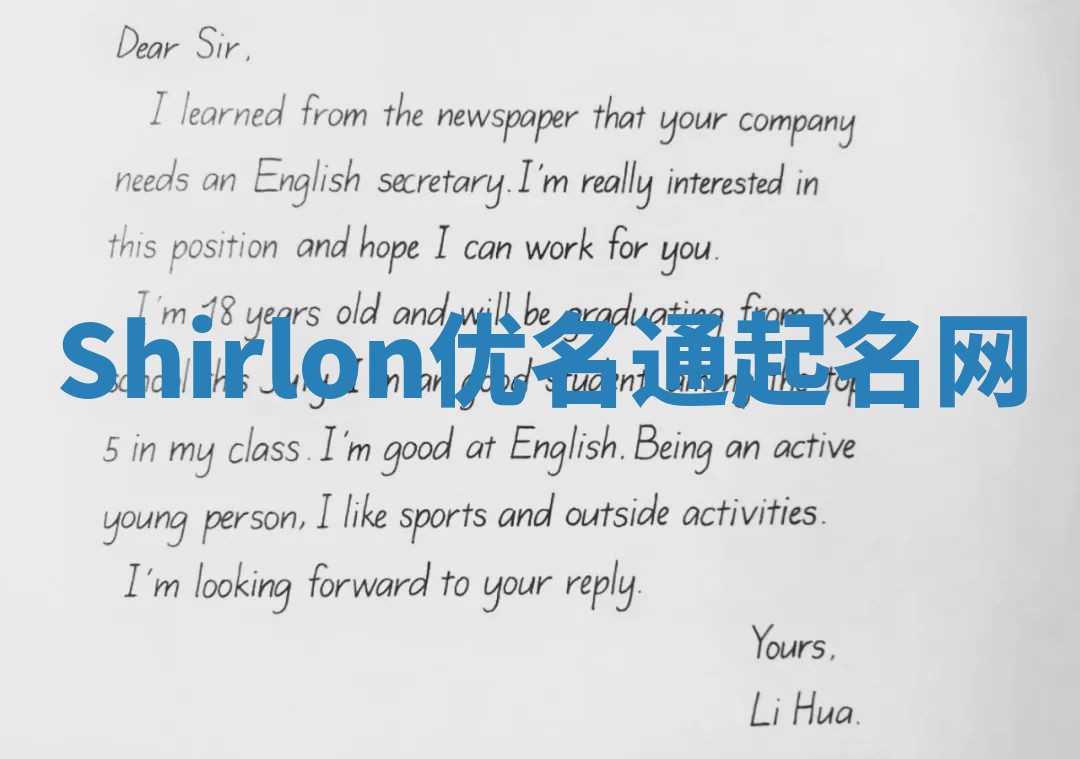 Dear Sir,
I learned from the newspaper that your company
needs an English secretary. I'm really interested in
this position and hope I can work for you.
I'm 18 years old and will be graduating from xx
Shirlon优名通起名网
school this July. I'm an good student among the top
5 in my class. I'm good at English. Being an active
young person, I like sports and outside activities.
I'm looking forward to your reply.
Yours,
Li Hua.